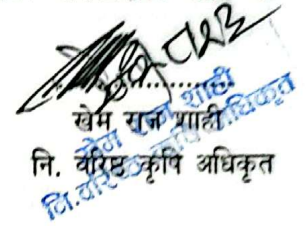 ....................
खेम राज शाही
नि. वरिष्ठ कृषि अधिकृत
खेम राज शाही
नि. वरिष्ठ कृषि अधिकृत